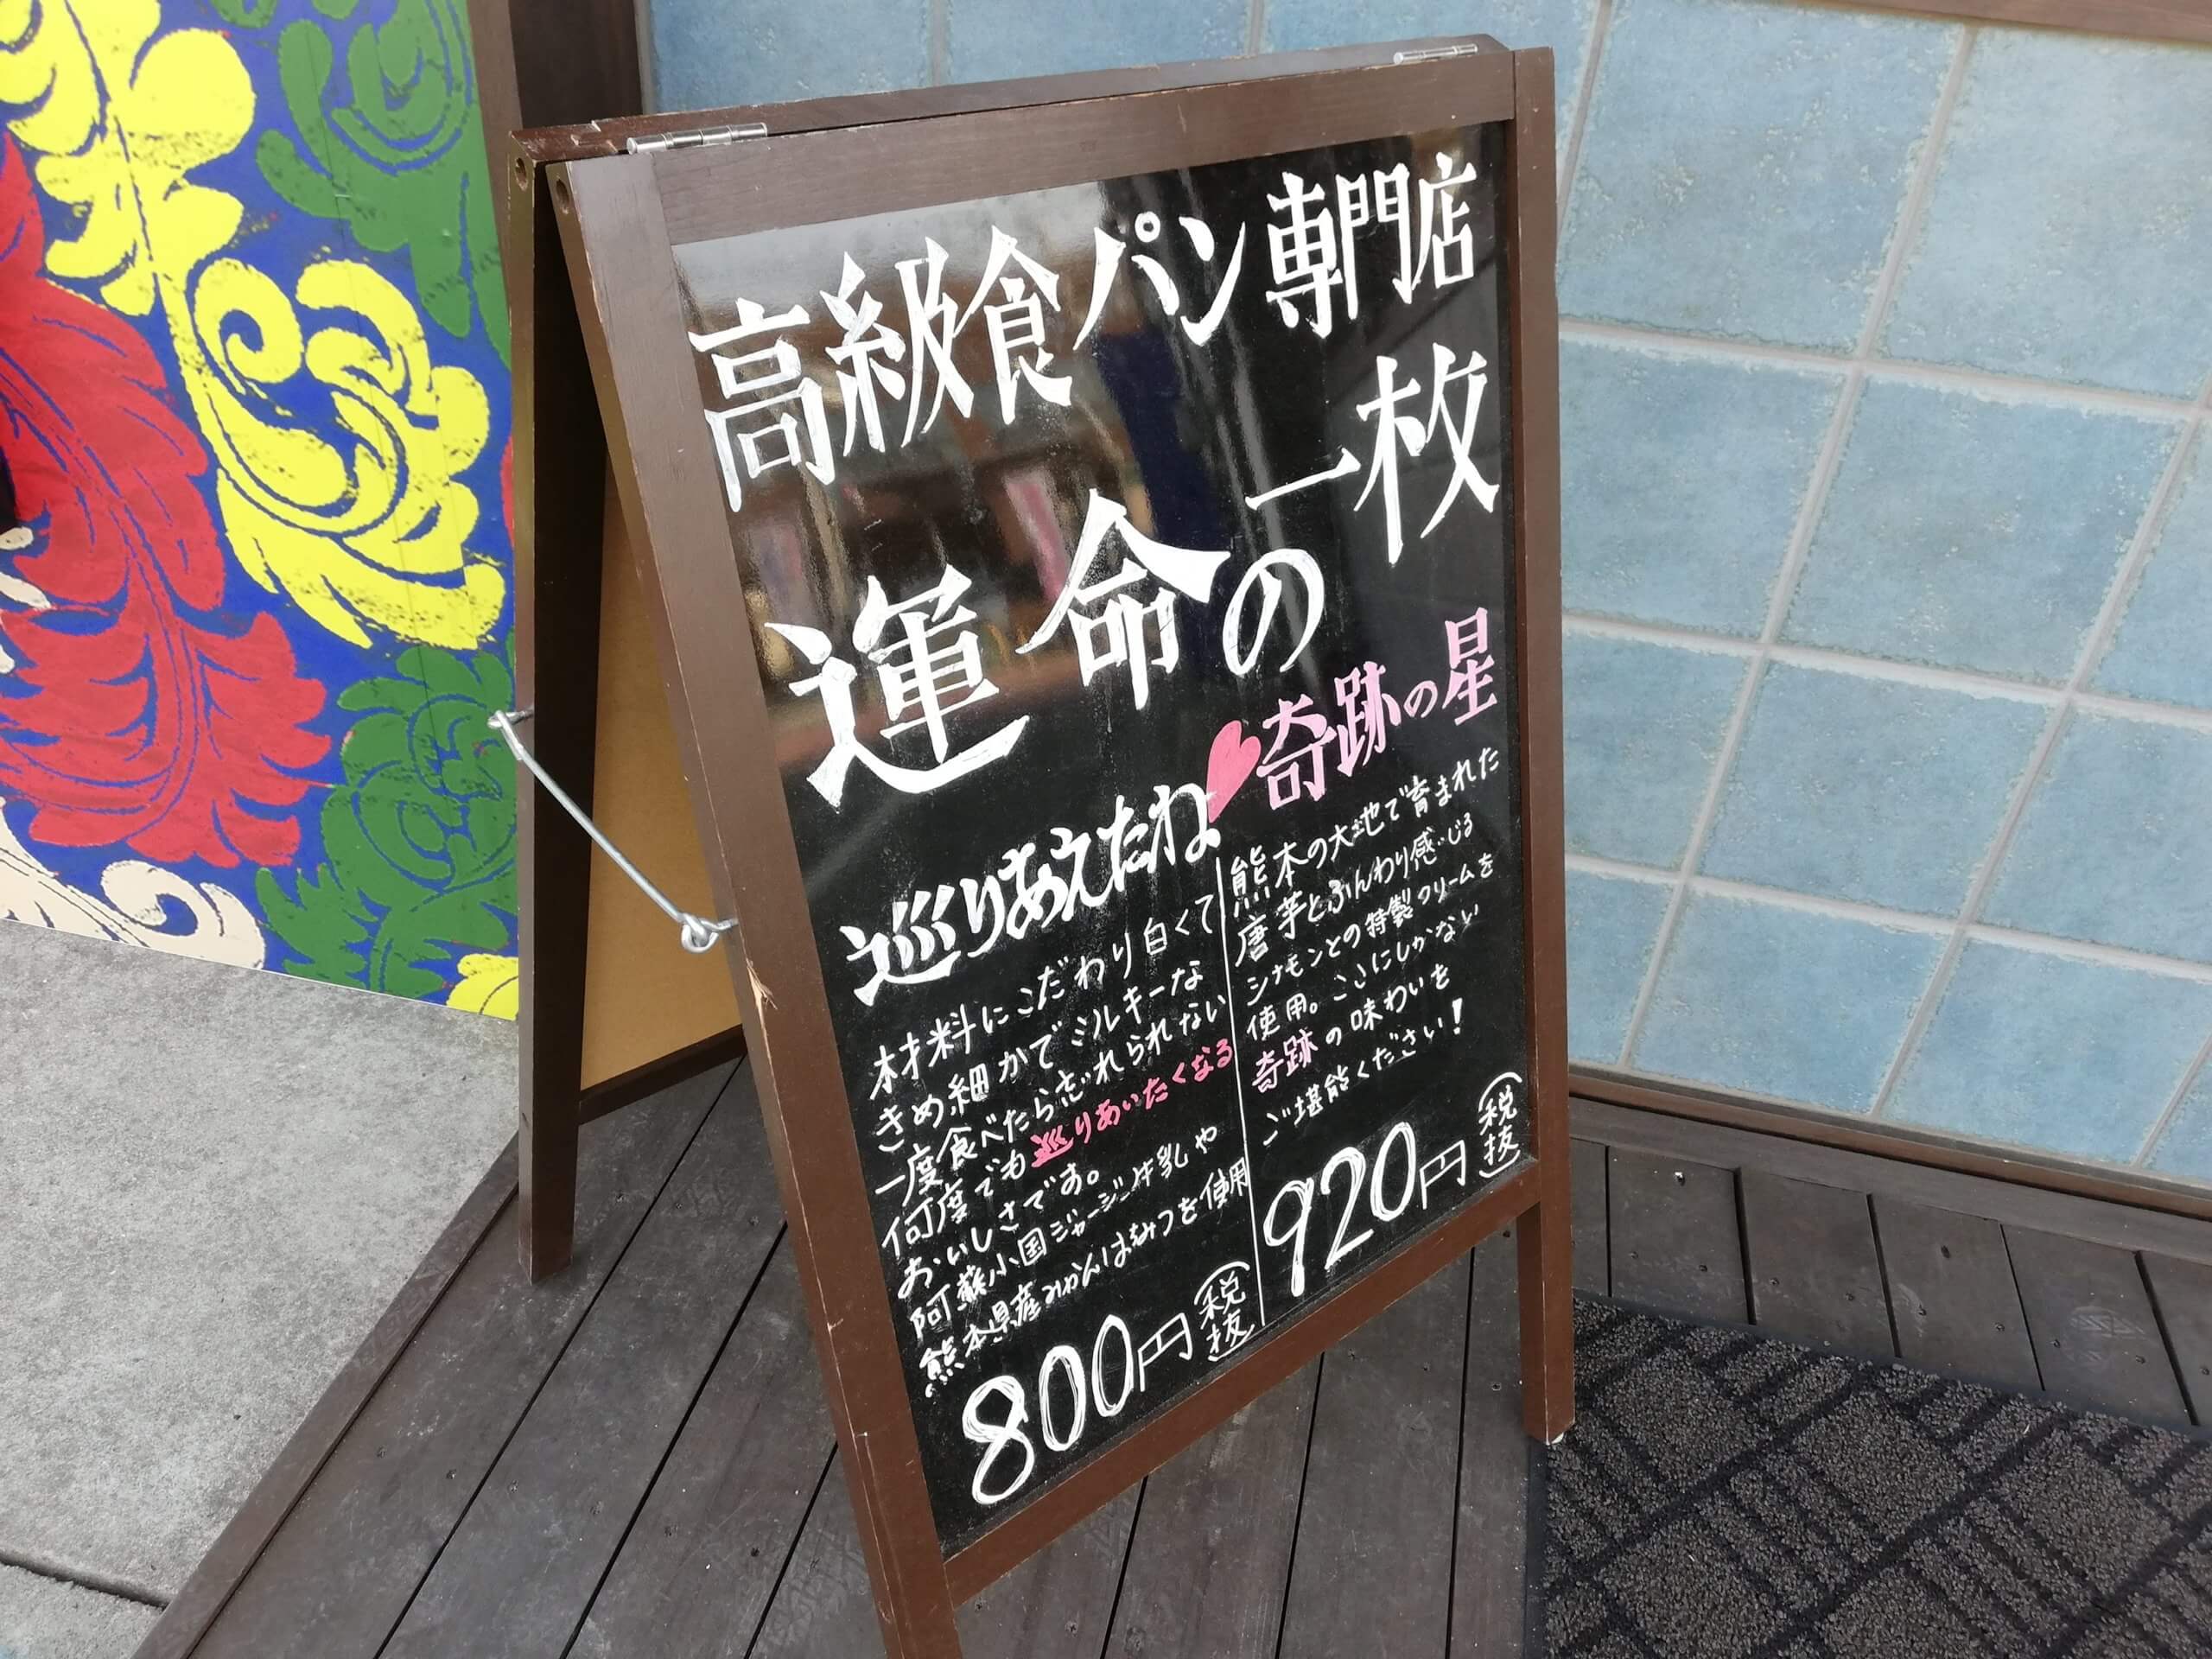 高級食パン専門店
運命の一枚
巡りあえたね
材料にこだわり白くて
きめ細かでミルキーな
一度食べたら忘れられない
何度でも巡りあいたくなる
おいしさです。
阿蘇小国ジャージー牛乳や
熊本県産みかんはちみつを使用
800円(税抜)
奇跡の星
熊本の大地で育まれた
唐芋とふんわり感じる
シナモンとの特製クリームを
使用。ここにしかない
奇跡の味わいを
ご堪能ください!
920円(税抜)